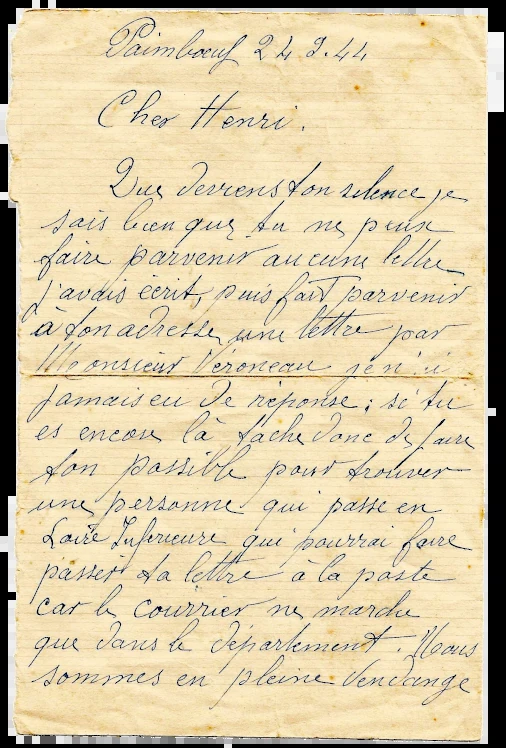 Paimboeuf 24 9.44
Cher Henri.
Que deviens ton silence je
sais bien que tu ne peux
faire parvenir aucune lettre
j'avais écrit, puis fait parvenir
à ton adresse une lettre par
Monsieur Véroneau je n'ai
jamais eu de réponse; si tu
es encore là tache donc de faire
ton possible pour trouver
une personne qui passe en
Loire Inferieure qui pourrai faire
passer ta lettre à la poste
car le courrier ne marche
que dans le département. Nous
sommes en pleine vendange